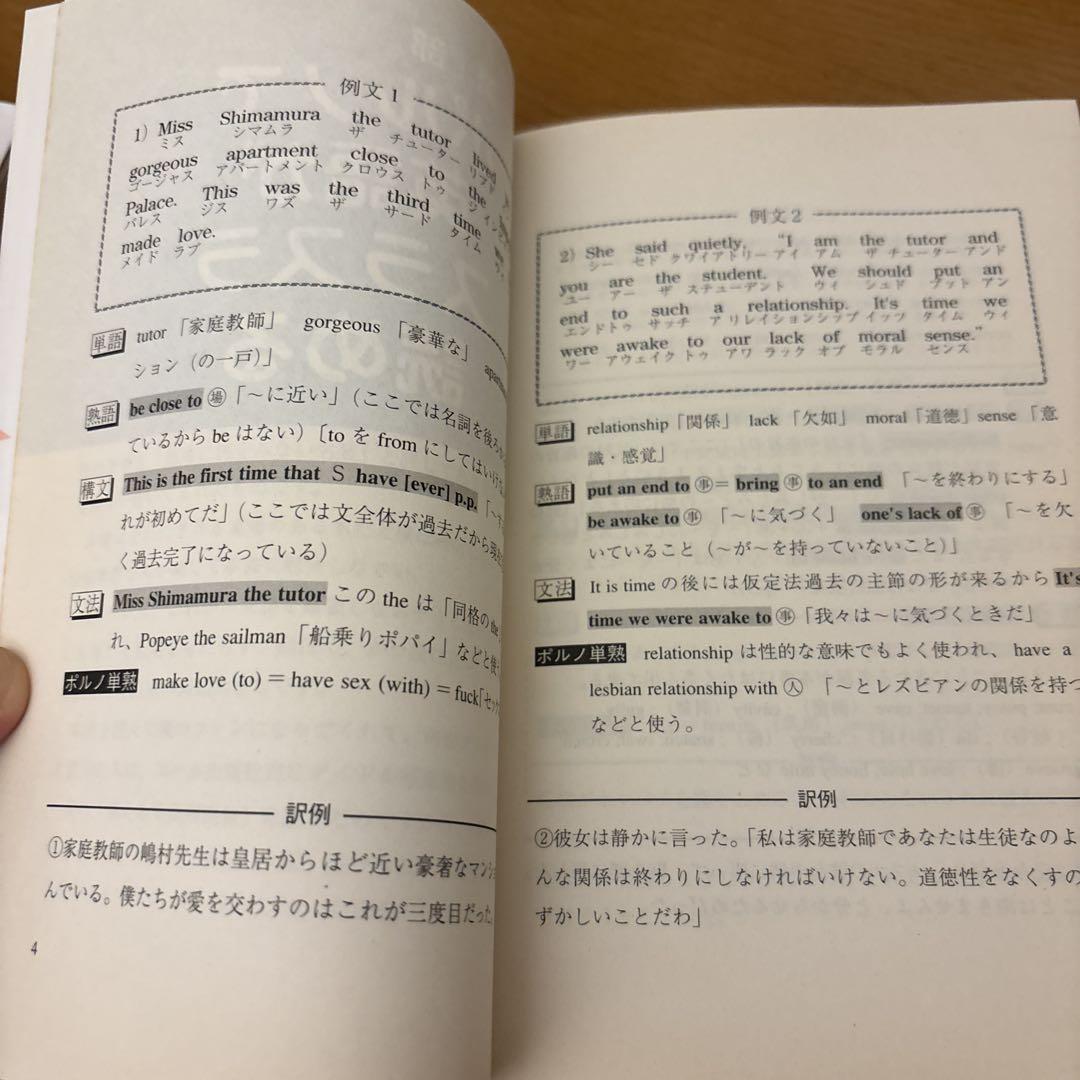 例文1
1) Miss Shimamura the tutor lived
ミス シマムラ ザ チューター リヴド
gorgeous apartment close to the
ゴージャス アパートメント クロウス トゥ ジ
Palace. This was the third time
パレス ジス ワズ ザ サード タイム
made love.
メイド ラブ
単語 tutor「家庭教師」 gorgeous「豪華な」
ション(の一戸)」
熟語 be close to 場「～に近い」(ここでは名詞を後ろか
ているから be はない)〔to を from にしてはいけな
構文 This is the first time that S have [ever] p.p.
れが初めてだ」(ここでは文全体が過去だから現在
く過去完了になっている)
文法 Miss Shimamura the tutor この the は「同格の the
れ、Popeye the sailman「船乗りポパイ」などと使
ポルノ単熟 make love (to)＝have sex (with)＝fuck「セック
訳例
①家庭教師の嶋村先生は皇居からほど近い豪奢なマンシ
んでいる。僕たちが愛を交わすのはこれが三度目だった
4
例文2
2) She said quietly, "I am the tutor and
シー セド クワイアトリー アイ アム ザ チューター アンド
you are the student. We should put an
ユー アー ザ ステューデント ウィ シュド プット アン
end to such a relationship. It's time we
エンド トゥ サッチ ア リレイションシップ イッツ タイム ウィ
were awake to our lack of moral sense."
ワー アウェイク トゥ アワ ラック オブ モラル センス
単語 relationship「関係」 lack「欠如」 moral「道徳」sense「意
識・感覚」
熟語 put an end to 事＝bring 事 to an end 「～を終わりにする」
be awake to 事 「～に気づく」 one's lack of 事 「～を欠
いていること(～が～を持っていないこと)」
文法 It is time の後には仮定法過去の主節の形が来るから It's
time we were awake to 事「我々は～に気づくときだ」
ポルノ単熟 relationship は性的な意味でもよく使われ、have a
lesbian relationship with 人 「～とレズビアンの関係を持つ
などと使う。
訳例
②彼女は静かに言った。「私は家庭教師であなたは生徒なのよ
んな関係は終わりにしなければいけない。道徳性をなくすの
ずかしいことだわ」